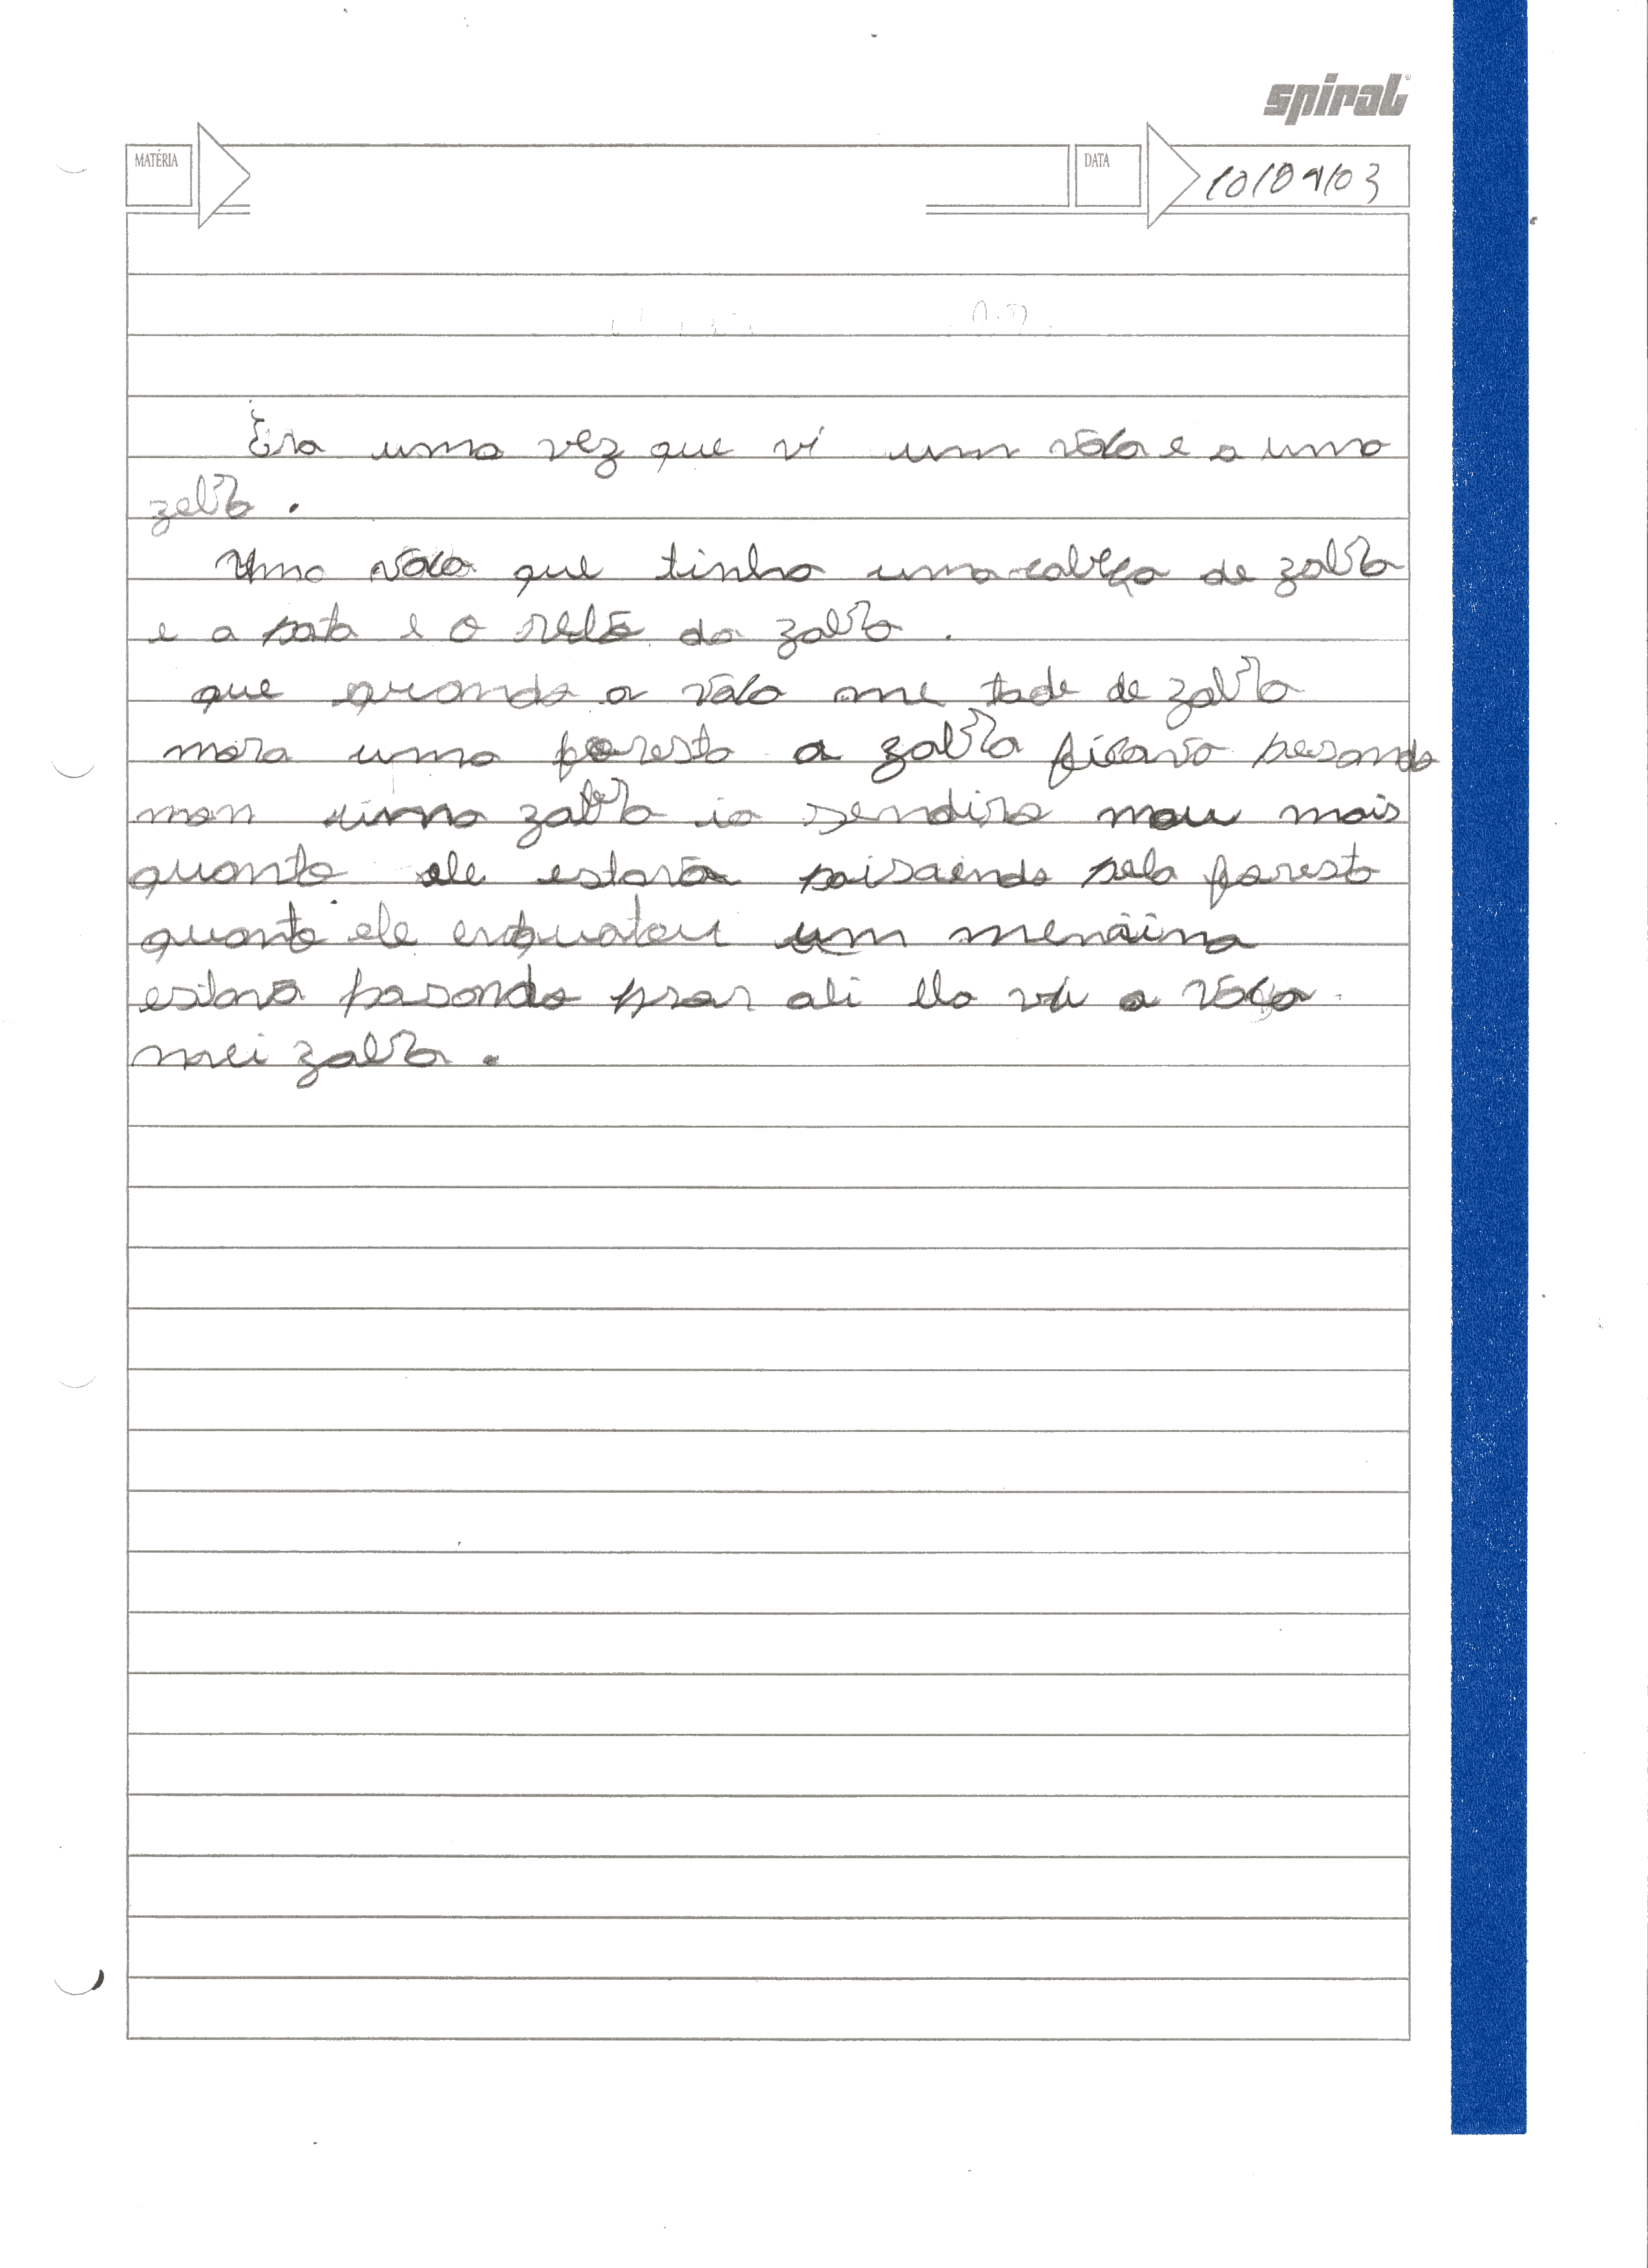 spiral
MATÉRIA
DATA
10/09/03
Era uma vez que vi um váca e a uma
zebra.
Uma váca que tinha uma cabeça de zabra
e a pata e o da zabra.
que quando a váca ame tade de zabra
mora uma foresta a zabra ficava pesando
man uma zabra ia sendira mau mais
quanto ele estava paisaendo pela foresta
quanto ele um menaina
estava pasondo prar ali ela viu a váca
mei zabra.